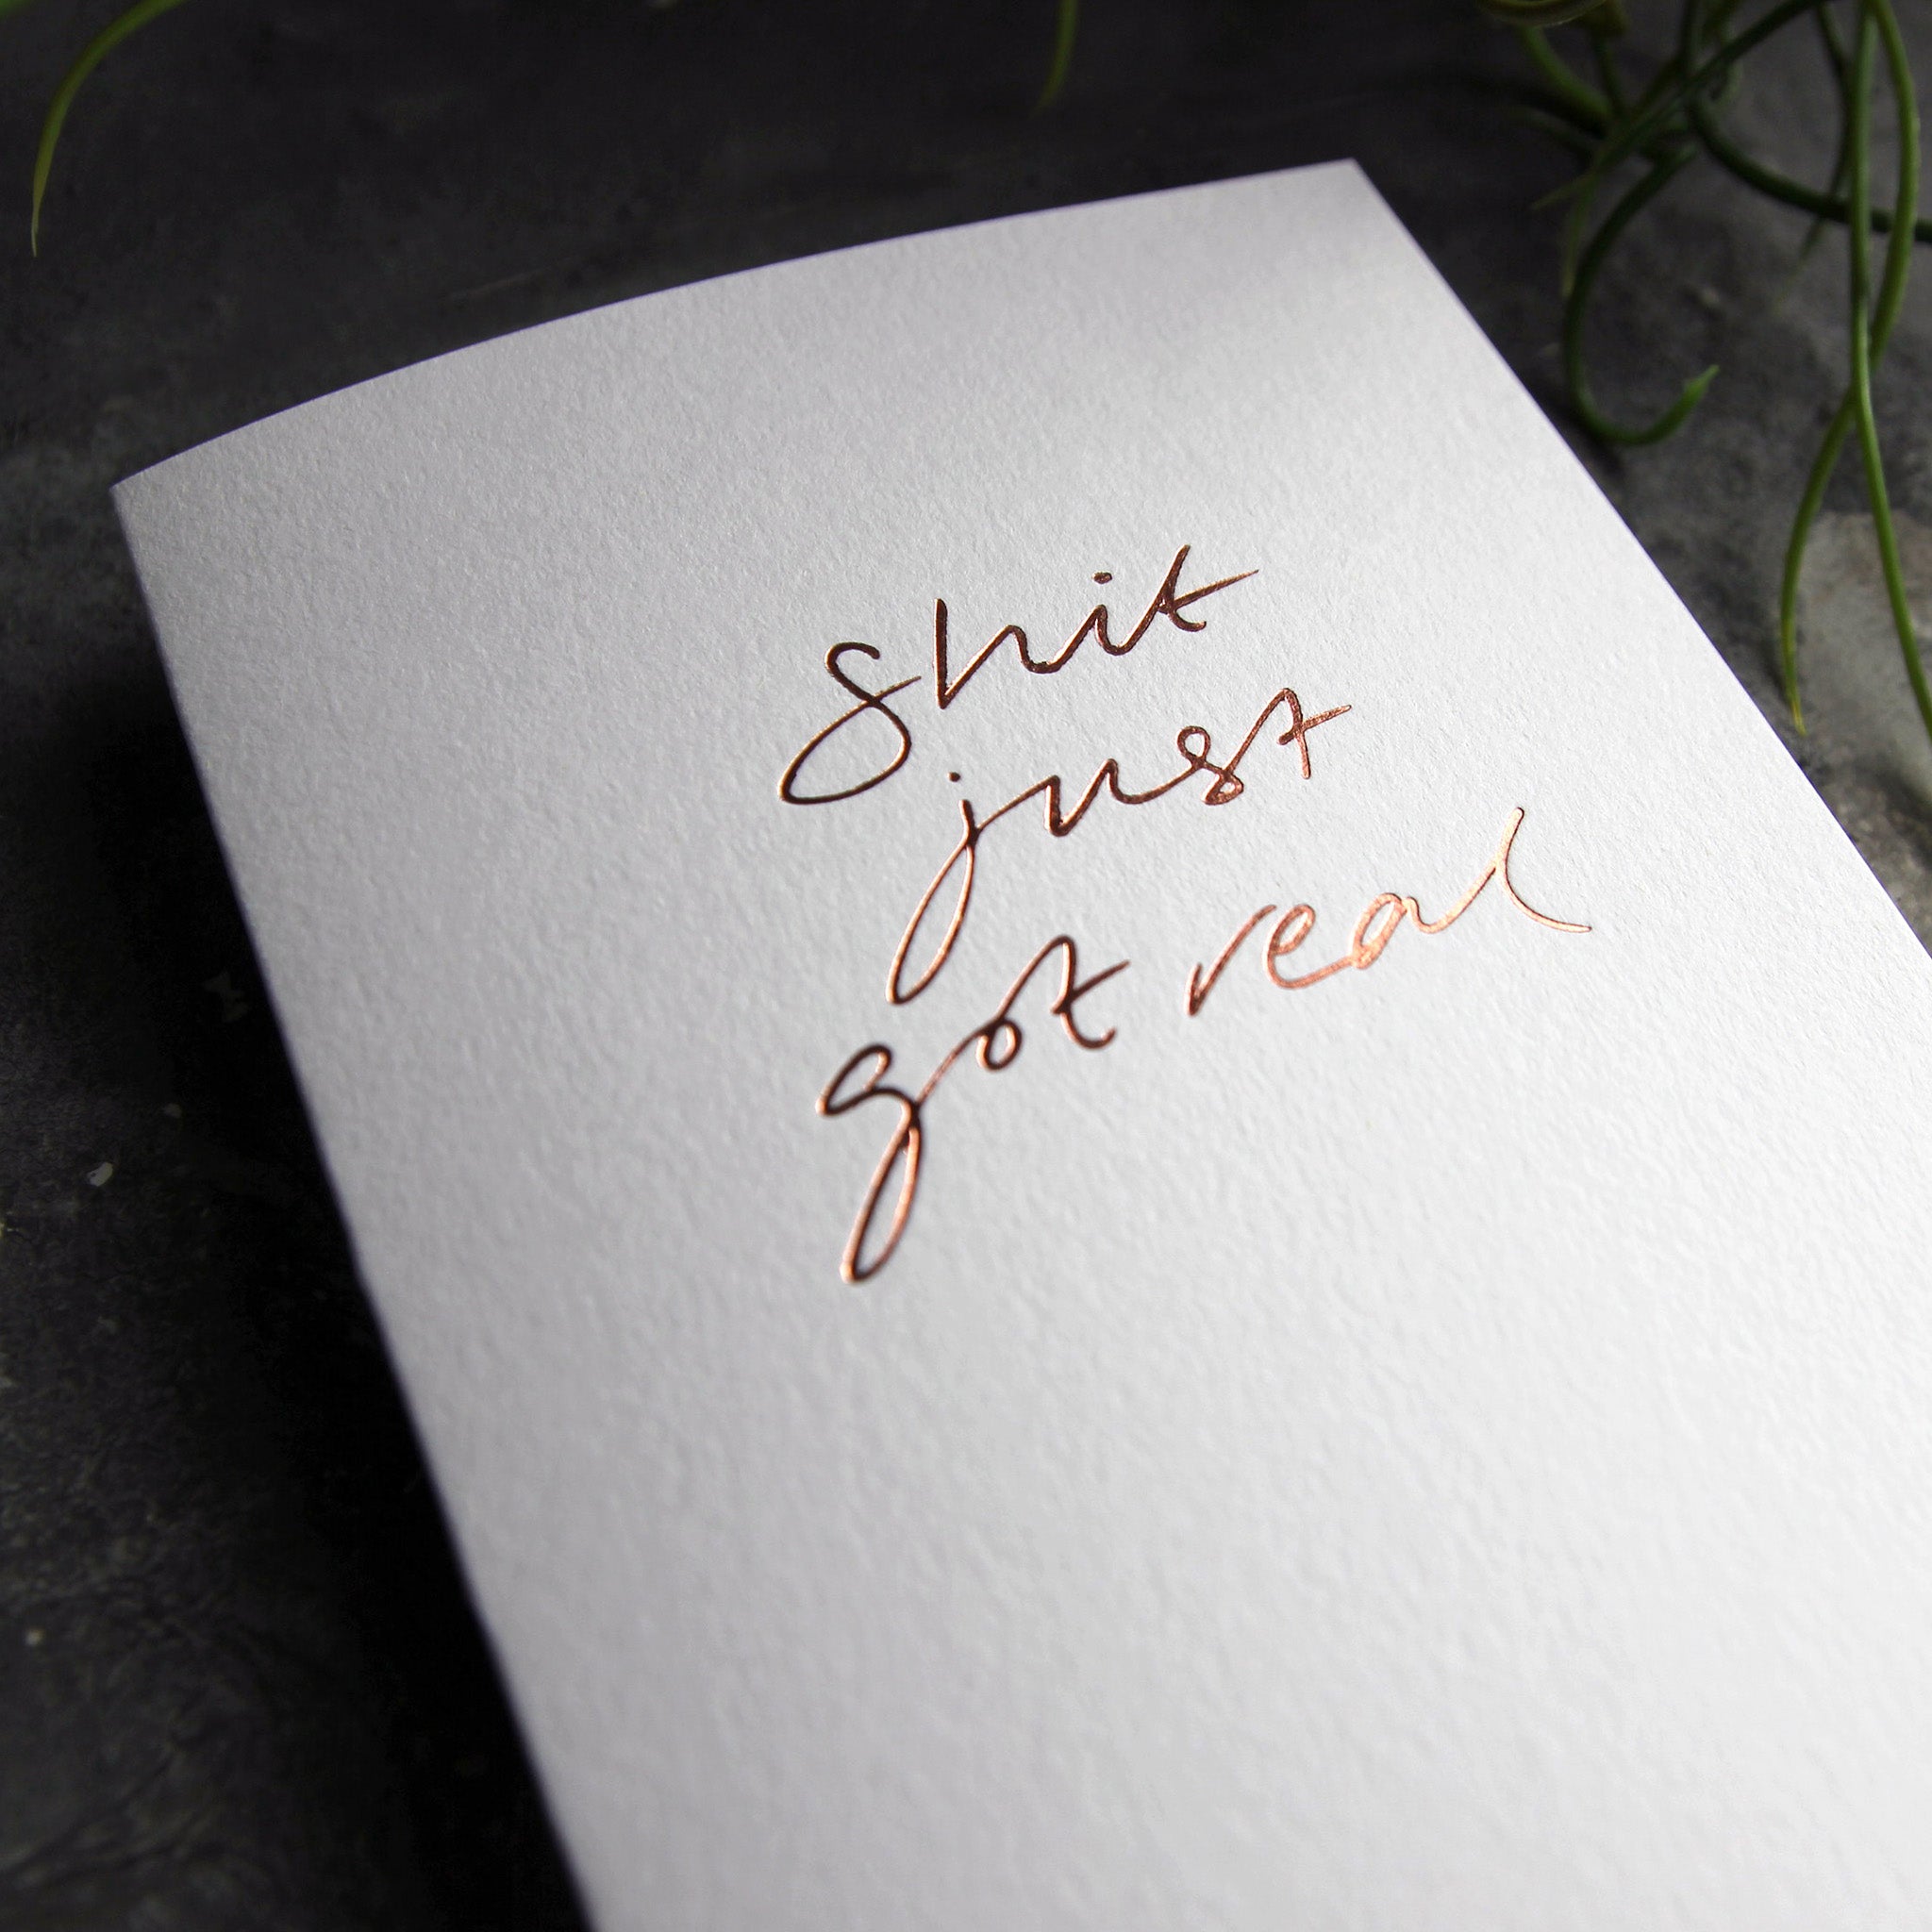 Shit
just
got real